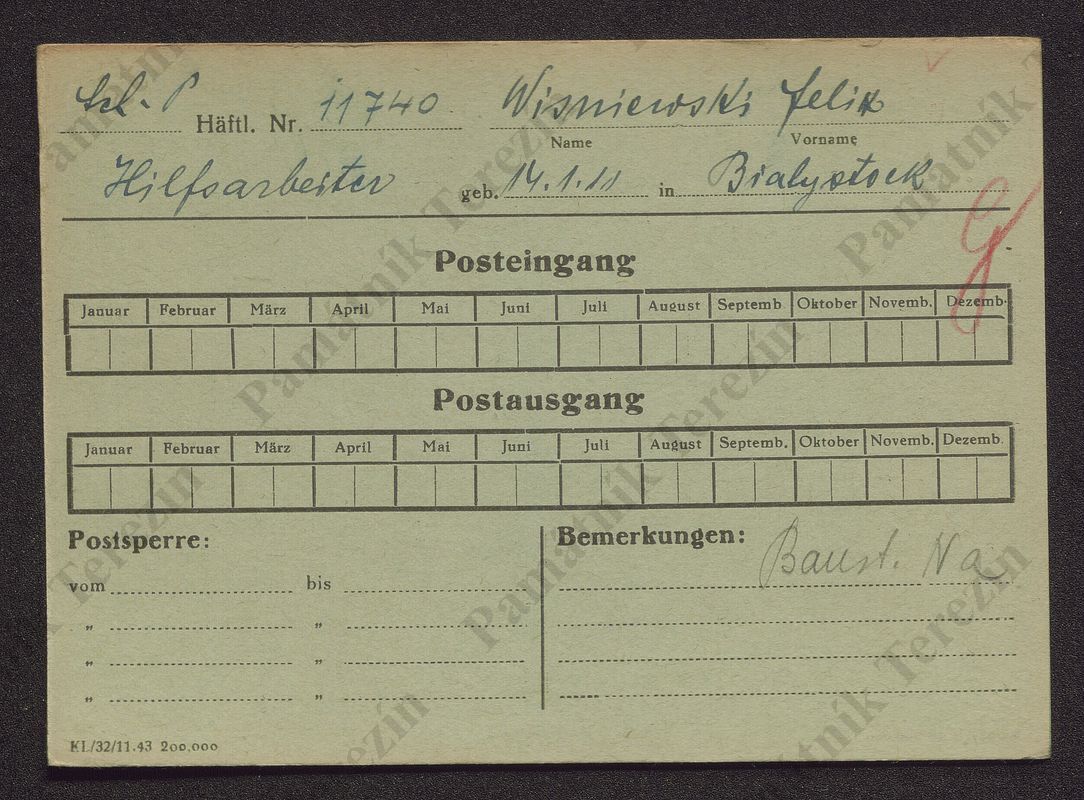 Sch. P Häftl. Nr. 11740 Wisniewski Felix
Name Vorname
Hilfsarbeiter geb. 14.1.11 in Bialystock
Posteingang
Januar Februar März April Mai Juni Juli August Septemb. Oktober Novemb. Dezemb.
Postausgang
Januar Februar März April Mai Juni Juli August Septemb. Oktober Novemb. Dezemb.
Postsperre: Bemerkungen: Baust. Na
vom bis
" "
" "
" "
KL/32/11.43 200,000
Památník Terezín